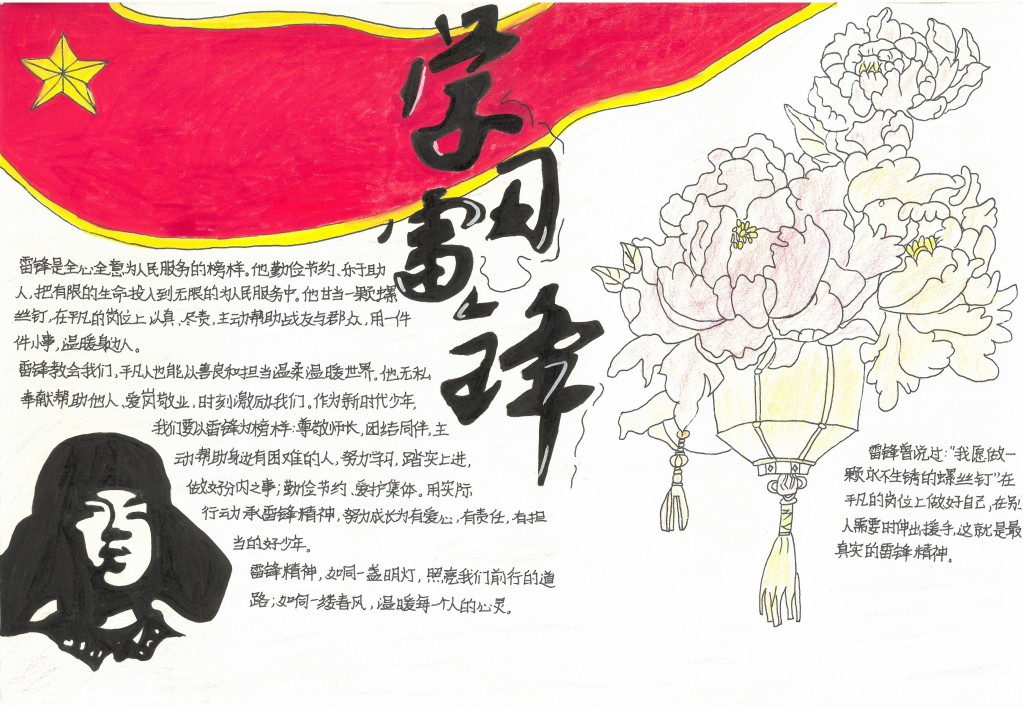 学习雷锋
雷锋是全心全意为人民服务的榜样。他勤俭节约、乐于助
人,把有限的生命投入到无限的为人民服务中。他甘当一颗螺
丝钉,在平凡的岗位上认真、尽责,主动帮助战友与群众,用一件
件小事,温暖身边人。
雷锋教会我们,平凡人也能以善良和担当温柔温暖世界。他无私
奉献帮助他人、爱岗敬业,时刻激励我们。作为新时代少年,
我们要以雷锋为榜样:尊敬师长,团结同伴,主
动帮助身边有困难的人,努力学习,踏实上进,
做好分内之事;勤俭节约、爱护集体。用实际
行动力承雷锋精神,努力成长为有爱心,有责任,有担
当的好少年。
雷锋精神,如同一盏明灯,照亮我们前行的道
路;如同一缕春风,温暖每个人的心灵。
雷锋曾说过:“我愿做一
颗永不生锈的螺丝钉”在
平凡的岗位上做好自己,在别
人需要时伸出援手,这就是最
真实的雷锋精神。